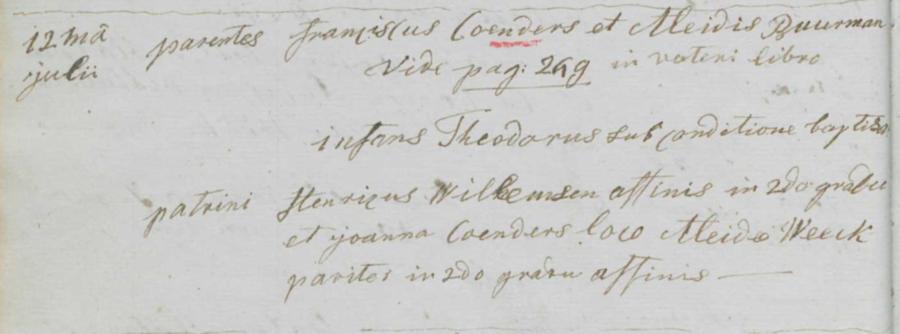 12mâ parentes Franciscus Coenders et Aleidis Buurman.
julii vide pag: 249 in veteri libro
infans Theodorus sub conditione baptiz
patrini Henricus Willemsen affinis in 2do gradu
et joanna Coenders loco Aleidæ Weeck
pariter in 2do gradu affinis